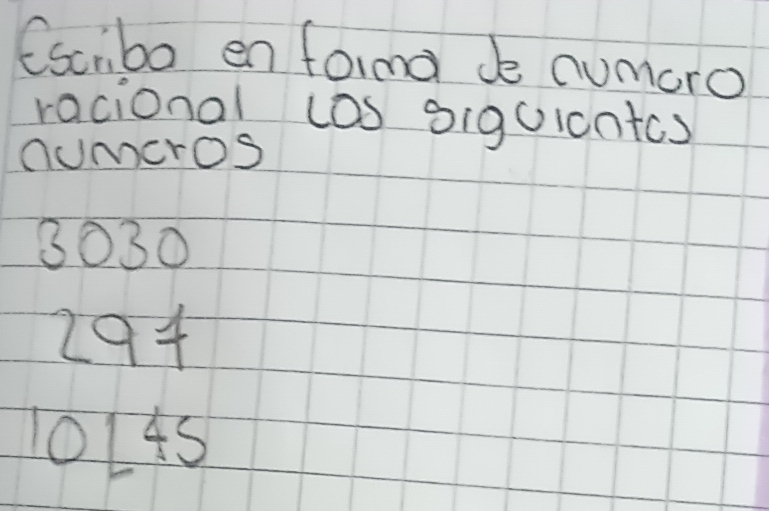 Escribo en forma de numero
racional los siguientes
numeros
3030
297
10,45